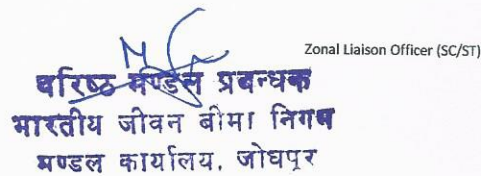 Zonal Liaison Officer (SC/ST)
वरिष्ठ मण्डल प्रबन्धक
भारतीय जीवन बीमा निगम
मण्डल कार्यालय, जोधपुर